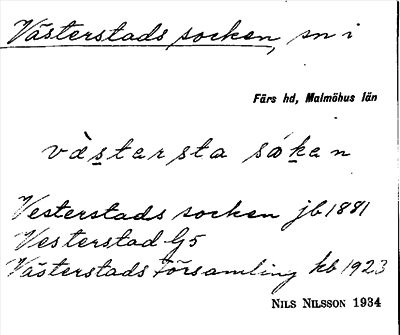 Västerstads socken, sn i
Färs hd, Malmöhus län
västersta såken
Vesterstads socken jb 1881
Vesterstad G5
Västerstads församling kb 1923
NILS NILSSON 1934